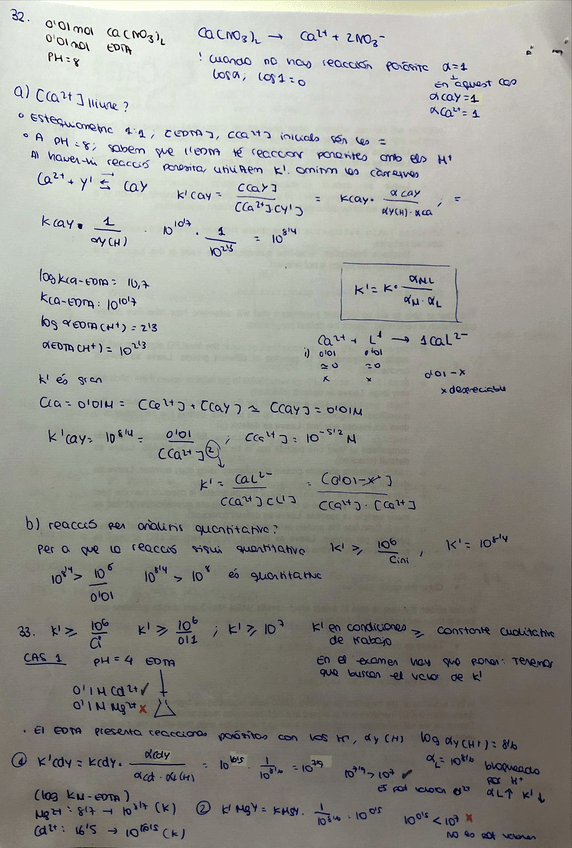 32.
0'01 mol Ca(NO3)2
0'01 mol EDTA
PH=8
Ca(NO3)2 → Ca2+ + 2NO3-
! cuando no hay reacción parásita α=1
log α, log 1 = 0
En aquest cas
αCaY=1
αCa2+=1
a) [Ca2+] lliure?
• Estequiometria 1:1, [EDTA], [Ca2+] inicials són les =
• A PH=8, sabem que l'EDTA té reaccions parasites amb els H+
Al haver-hi reacció parasita, utilitzem K'. Omitim les càrregues
Ca2+ + Y' ⇆ CaY
K'CaY = [CaY] / [Ca2+][Y'] = KCaY · αCaY / αY(H)·αCa , =
KCaY · 1 / αY(H) · 10^10'7 · 1 / 10^2'3 = 10^8'4
log KCa-EDTA = 10,7
KCa-EDTA: 10^10'7
log αEDTA(H+) = 2'3
αEDTA(H+) = 10^2'3
K' = K · αML / αM · αL
Ca2+ + L4- → 1CaL2-
i) 0'01 0'01
≃0 ≃0
x x 0'01-x
x depreciable
K' és gran
CCa = 0'01M = [Ca2+] + [CaY] ≃ [CaY] = 0'01M
K'CaY = 10^8'4 = 0'01 / [Ca2+]^2 ; [Ca2+] = 10^-5'2 M
K' = CaL2- / [Ca2+][L'] = [0'01-x] / [Ca2+]·[Ca2+]
b) reacció per anàlisis quantitativa?
Per a que la reacció sigui quantitativa K' ≥ 10^6 / Cini , K' = 10^8'4
10^8'4 > 10^6 / 0'01 10^8'4 > 10^8 és quantitativa
33. K' ≥ 10^6 / Ci K' ≥ 10^6 / 0'1 ; K' ≥ 10^7
K' en condiciones de trabajo ≥ constante cualitativa
CAS 1 PH=4 EDTA
En el examen hay que poner: Tenemos
que buscar el valor de K'
0'1M Cd2+ ✓
0'1M Mg2+ ✗
• El EDTA presenta reacciones parásitas con los H+, αY(H) log αY(H+) = 8'6
① K'CdY = KCdY · αCdY / αCd · αY(H) = 10^16'5 · 1 / 10^8'6 = 10^7'9
10^7'9 > 10^7 ✓
Es pot valorar Cd2+
αL = 10^8'6 bloqueado
por H+
αL↑ K'↓
(log KM-EDTA)
Mg2+: 8'7 → 10^8'7 (K)
Cd2+: 16'5 → 10^16'5 (K)
② K'MgY = KMgY · 1 / 10^8'6 · 10^0'5
10^0'5 < 10^7 ✗
No es pot valorar